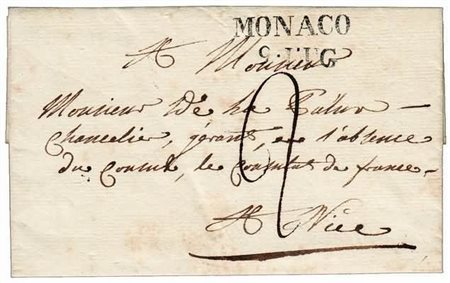 MONACO
9 LUG
A Monsieur
Monsieur De La
chancelier, gérant, en l'absence
du Consul, le consulat de france
2
A Nice